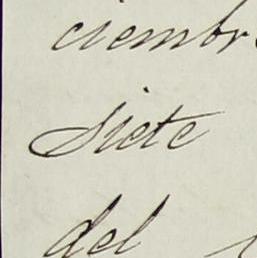 ciembr
siete
del